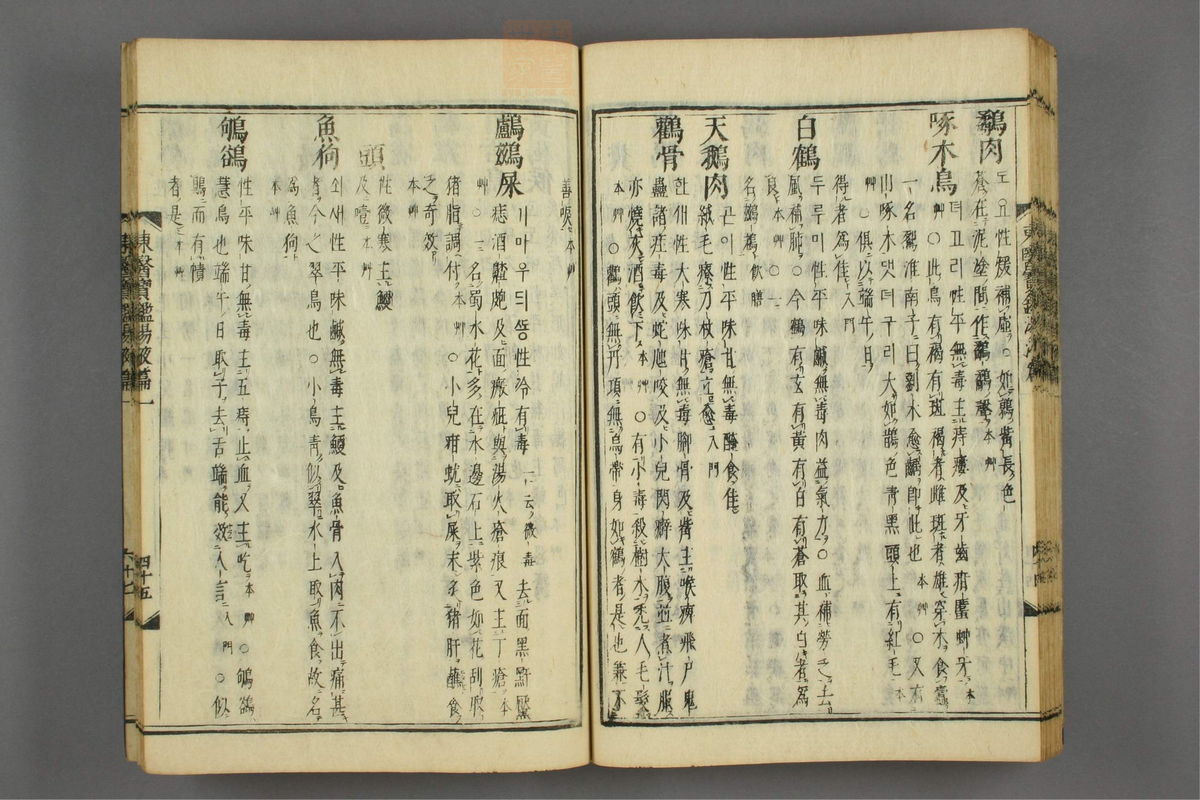 鷸肉 도요性煖補虛○如鶉觜長色
蒼在泥塗間作鷸鷸聲本草
啄木鳥 뎌고리性平無毒主痔瘻及牙齒疳䘌蚛牙本
草○此鳥有褐有斑褐者雌斑者雄穿木食蠹
一名鴷淮南子曰斲木愈齲卽此也本草○又有
山啄木 뎌구리大如鵲色靑黑頭上有紅毛本
草○俱以端午日
得者爲佳入門
白鶴 두루미性平味鹹無毒肉益氣力○血補勞乏去
風補肺○今鶴有玄有黃有白有蒼取其白者爲
良本草○一
名鸕鷀飮膳
天鵝肉 곤이性平味甘無毒醃食佳
絨毛療刀杖瘡立愈入門
鸛骨 한새性大寒味甘無毒脚骨及觜主喉痺飛尸鬼
蠱諸疰毒及蛇虺咬及小兒閃癖大腹並煮汁服
亦燒灰酒飮下本草○有小毒殺樹木禿人毛髮
本草○鸛頭無丹項無烏帶身如鶴者是也兼不
善唳本草
鸕鷀屎 가마우디ᄯᅩᇰ性冷有毒一云微毒去面黑䵟黶
痣酒齇皰及面瘢疵與湯火瘡痕又主丁瘡本
草○一名蜀水花多在水邊石上紫色如花刮取
猪脂調付本草○小兒疳蛔取屎末炙猪肝蘸食
之奇效
本草
頭 性微寒主鯁
及噎本草
魚狗 쇠새性平味鹹無毒主鯁及魚骨入肉不出痛甚
者今之翠鳥也○小鳥靑似翠水上取魚食故名
爲魚狗
本草
鴝鵒 性平味甘無毒主五痔止血又主吃本草○鴝鵒
慧鳥也端午日取子去舌端能效人言入門○似
鶪而有幘
者是本草
東醫寶鑑湯液篇一
四十五